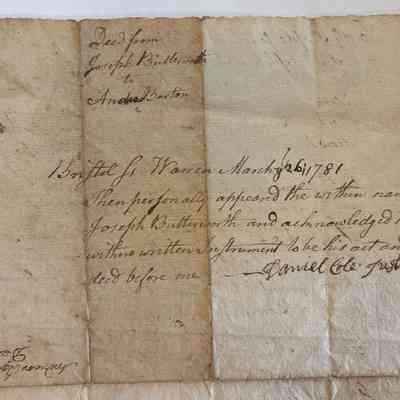 Deed from
Joseph Butterworth
to
Andrw Barton
Bristol Ss Warren March ye 26, 1781
Then personally appeard the within nam
Joseph Butterworth and acknowledged
within written Instrument to be his act an
deed before me Daniel Cole Just